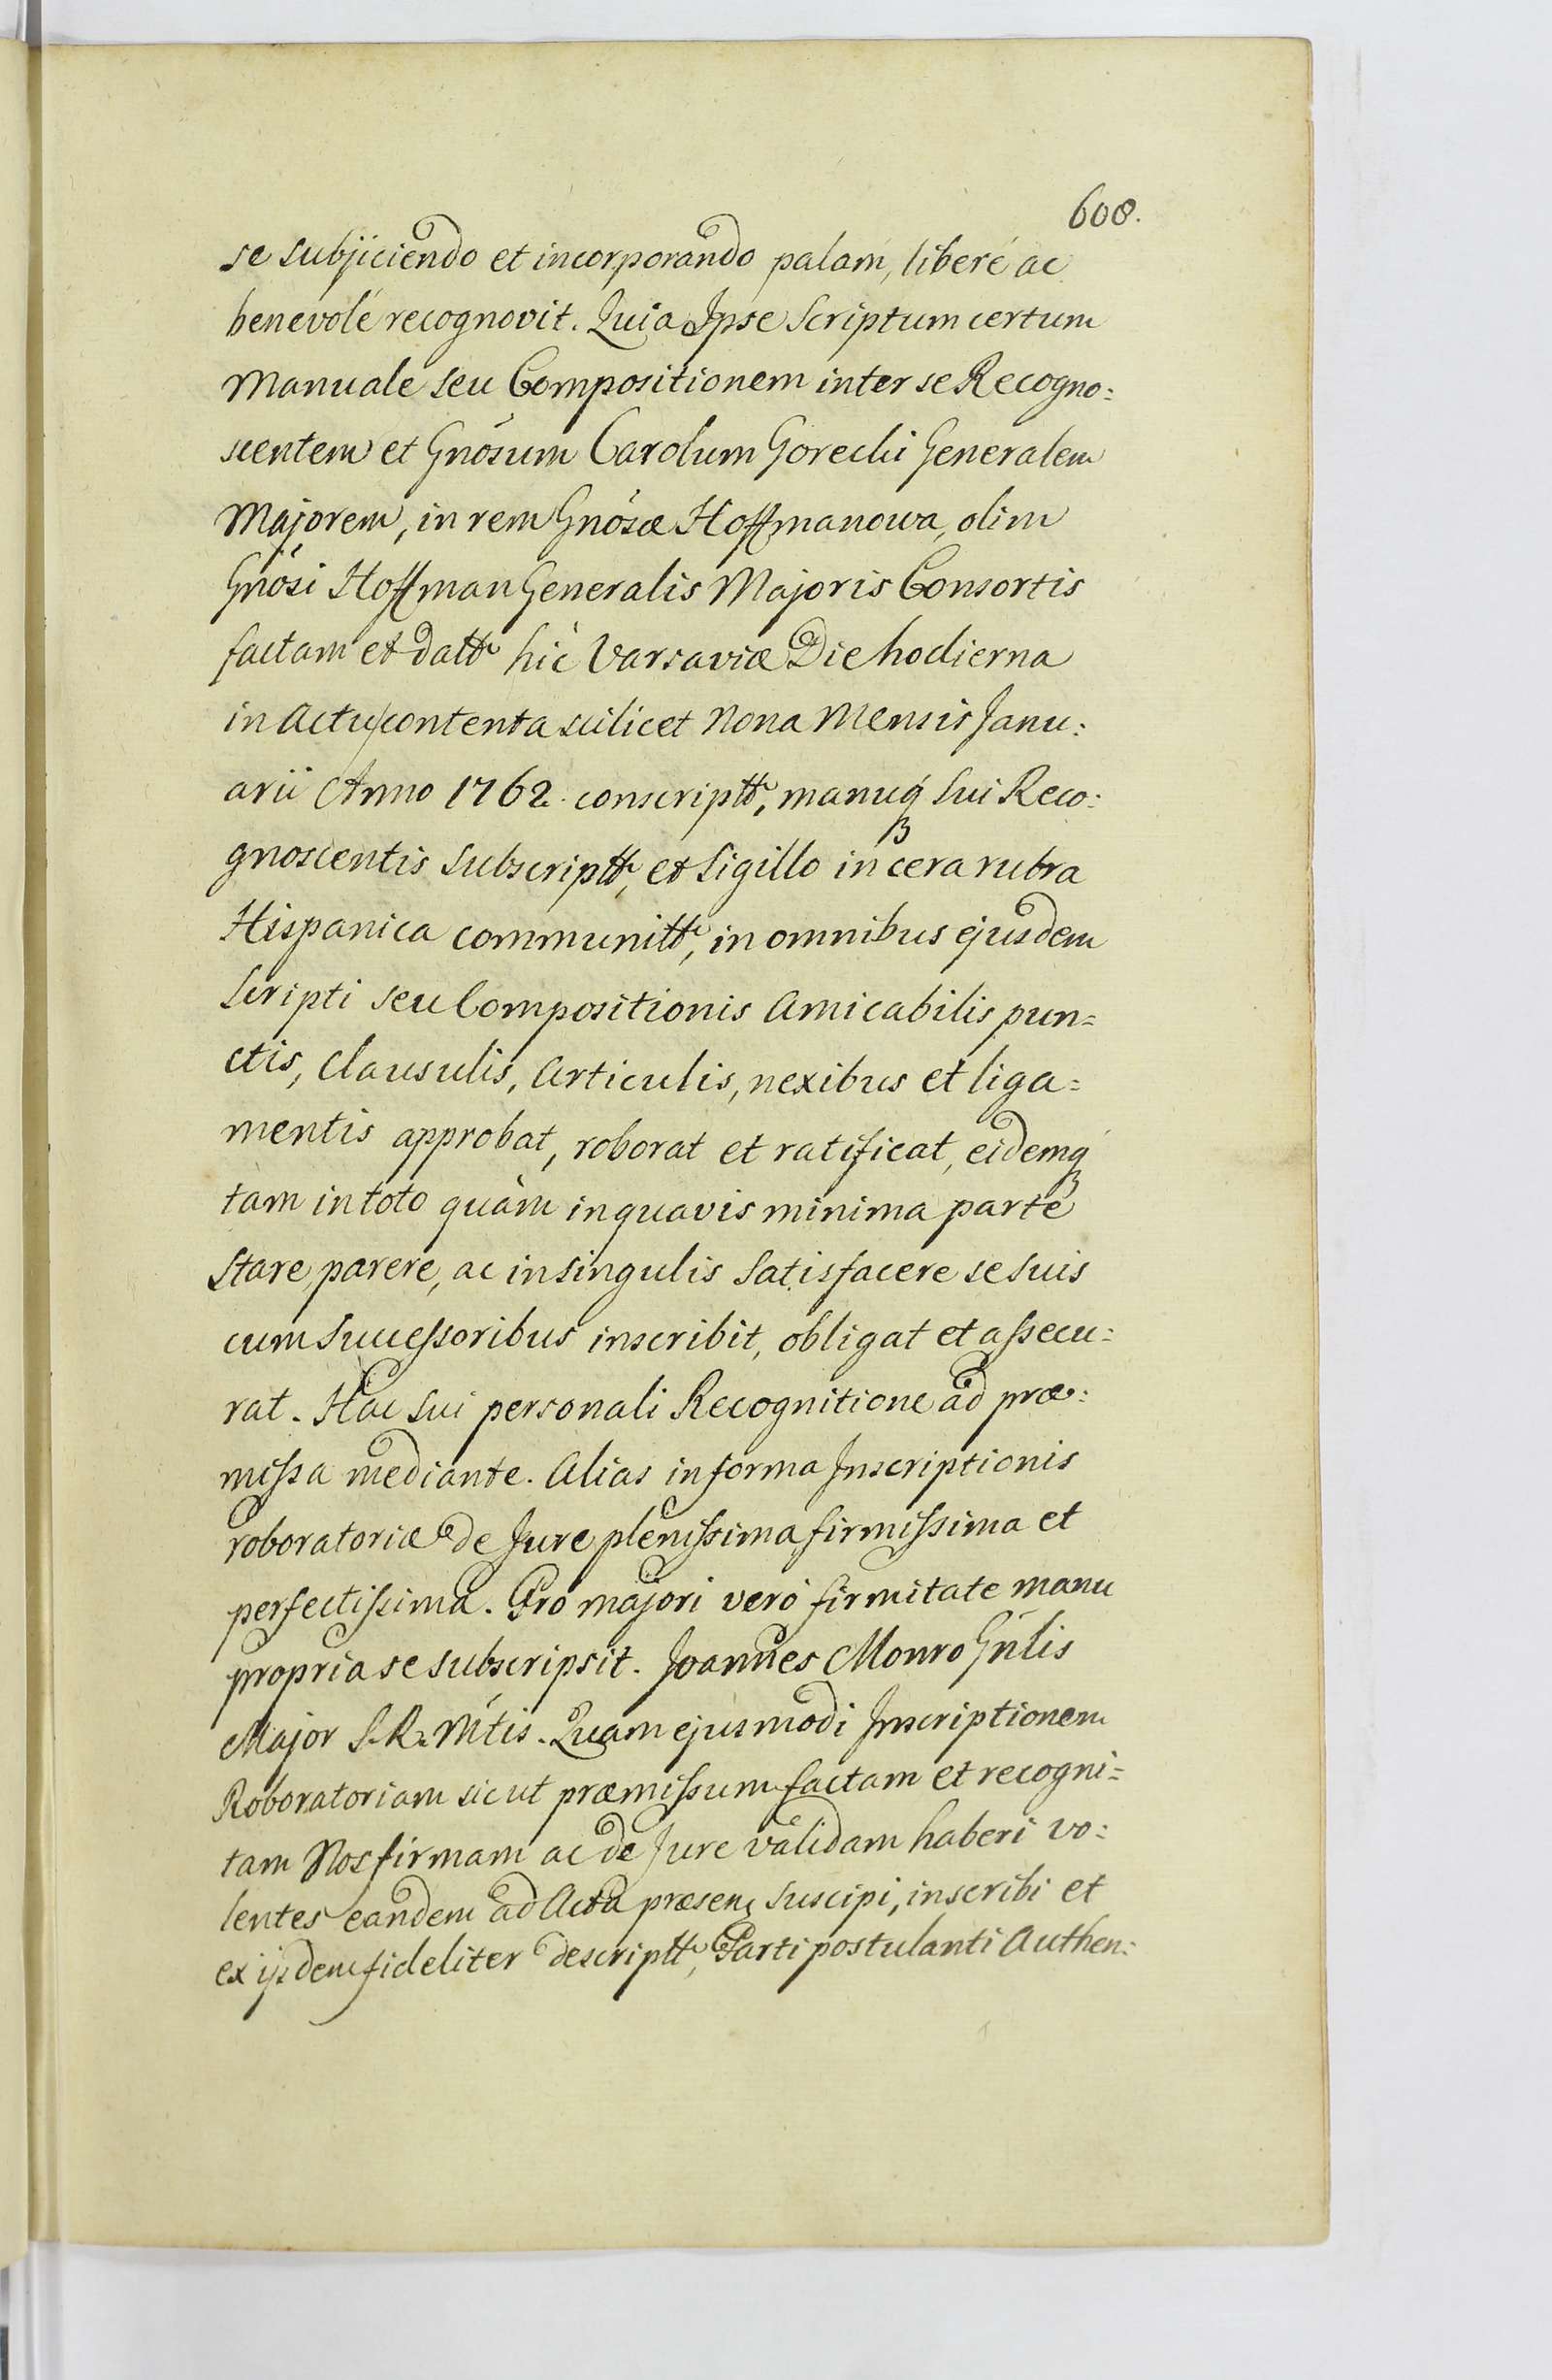 608.
se subjiciendo et incorporando palam, liberè ac
benevolè recognovit. Quia Ipse Scriptum certum
Manuale seu Compositionem inter se Recogno:
scentem et Gnosum Carolum Gorecki Generalem
Majorem, in rem Gnosæ Hoffmanowa, olim
Gnosi Hoffman Generalis Majoris Consortis
factam et datt hic Varsaviæ Die hodierna
in Actu contenta scilicet Nona Mensis Janu:
arii Anno 1762. conscriptt, manuq Sui Reco:
gnoscentis Subscriptt, et Sigillo in cera rubra
Hispanica communitt, in omnibus ejusdem
Scripti seu Compositionis Amicabilis pun=
ctis, Clausulis, Articulis, nexibus et liga=
mentis approbat, roborat et ratificat, eidemq
tam in toto quàm in quavis minima parte
Stare, parere, ac in singulis Satisfacere se suis
cum Successoribus inscribit, obligat et assecu:
rat. Hac Sui personali Recognitione ad præ:
missa mediante. Alias in forma Inscriptionis
roboratoriæ de Jure plenissima, firmissima et
perfectissima. Pro majori verò firmitate manu
propria se subscripsit. Joannes Monro Gnlis
Major S. R. Mtis. Quam ejusmodi Inscriptionem
Roboratoriam sicut præmissum factam et recogni=
tam Nos firmam ac de Jure validam haberi vo:
lentes eandem ad Acta præsen suscipi, inscribi et
ex ijsdem fideliter descriptt, Parti postulanti Authen: